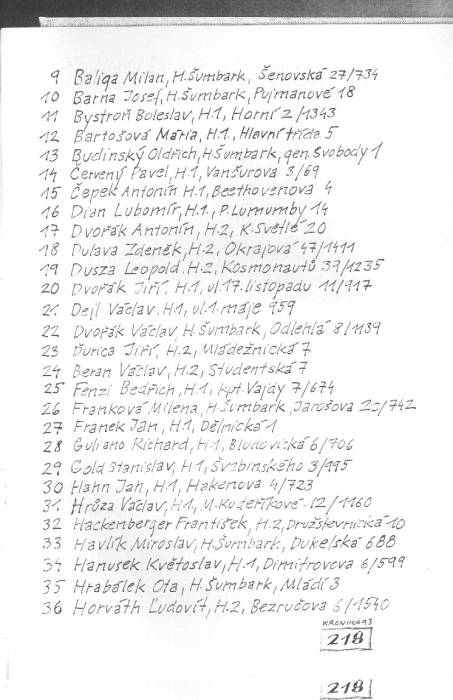 9 Baliga Milan, H.Šumbark, Šenovská 27/734
10 Barna Josef, H.Šumbark, Pujmanové 18
11 Bystroň Boleslav, H.1, Horní 2/1343
12 Bartošová Maria, H.1, Hlavní třída 5
13 Budinský Oldřich, H.Šumbark, gen.Svobody 1
14 Červený Pavel, H.1, Vančurova 3/69
15 Čepek Antonín H.1, Beethovenova 4
16 Dian Lubomír, H.1., P.Lumumby 14
17 Dvořák Antonín, H.2, K.Světlé 20
18 Dulava Zdeněk, H.2, Okrajová 47/1411
19 Dusza Leopold. H.2, Kosmonautů 39/1235
20 Dvořák Jiří, H.1, ul.17.listopadu 11/917
21 Dejl Václav. H.1, ul.1.máje 959
22 Dvořák Václav, H.Šumbark, Odlehlá 8/1139
23 Ďurica Jiří, H.2, Mládežnická 7
24 Beran Václav, H.2, Studentská 7
25 Fenzl Bedřich, H.1, kpt.Vajdy 7/674
26 Franková Milena, H.Šumbark, Jarošova 20/742
27 Franek Jan, H.1, Dělnická 1
28 Guliano Richard, H.1, Bludovická 6/706
29 Gold Stanislav, H.1, Švabinského 3/195
30 Hahn Jan, H.1, Hakenova 4/723
31 Hrůza Václav, H.1, M.Kudeříkové 12/1160
32 Hackenberger František, H.2, Družstevnická 10
33 Havlík Miroslav, H.Šumbark, Dukelská 688
34 Hanusek Květoslav, H.1, Dimitrovova 6/599
35 Hrabálek Ota, H.Šumbark, Mládí 3
36 Horváth Ľudovít, H.2, Bezručova 6/1540
KRONIKA 93
218
218